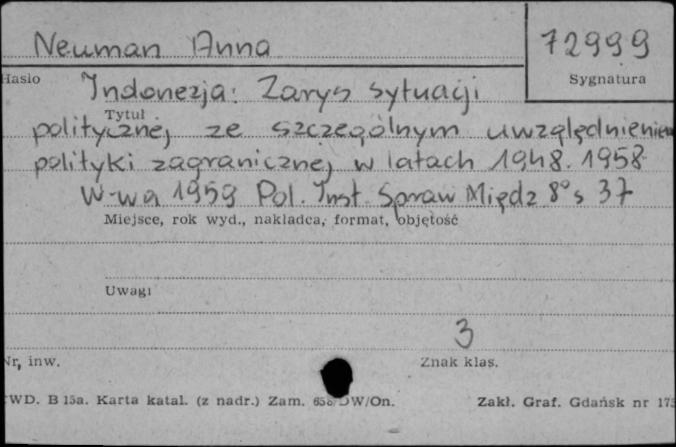 Neuman Anna
72999
Hasło
Sygnatura
Indonezja: Zarys sytuacji
Tytuł
politycznej ze szczególnym uwzględnieniem
polityki zagranicznej w latach 1948. 1958
W-wa 1959 Pol. Inst. Spraw Międz 8° s 37
Miejsce, rok wyd., nakładca, format, objętość
Uwagi
3
Nr, inw.
Znak klas.
WD. B 15a. Karta katal. (z nadr.) Zam. DW/On.
Zakł. Graf. Gdańsk nr